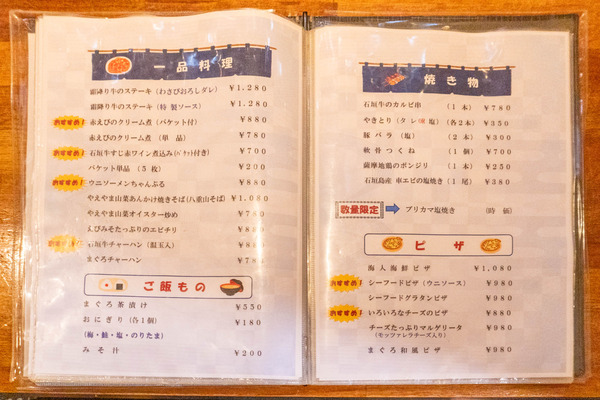 一品料理
霜降り牛のステーキ（わさびおろしダレ） ¥1.280
霜降り牛のステーキ（特製ソース） ¥1.280
おすすめ！ 赤えびのクリーム煮（バケット付） ¥880
赤えびのクリーム煮（単品） ¥780
おすすめ！ 石垣牛すじ赤ワイン煮込み（バケット付き） ¥700
バケット単品（5枚） ¥200
おすすめ！ ウニソーメンちゃんぷる ¥880
やえやま山菜あんかけ焼きそば（八重山そば） ¥1,080
やえやま山菜オイスター炒め ¥780
えびみそたっぷりのエビチリ
石垣牛チャーハン（温玉入）
まぐろチャーハン
ご飯もの
まぐろ茶漬け ¥550
おにぎり（各1個） ¥180
（梅・鮭・塩・のりたま）
みそ汁 ¥200
焼き物
石垣牛のカルビ串 （1本） ¥780
やきとり（タレ 塩）（各2本） ¥350
豚バラ（塩） （2本） ¥300
軟骨つくね （1個） ¥700
薩摩地鶏のボンジリ （1本） ¥250
石垣島産 車エビの塩焼き（1尾） ¥380
数量限定 ブリカマ塩焼き （時価）
ピザ
海人海鮮ピザ ¥1,080
おすすめ！ シーフードピザ（ウニソース） ¥980
シーフードグラタンピザ ¥980
おすすめ！ いろいろなチーズのピザ ¥880
チーズたっぷりマルゲリータ ¥980
（モッツァレラチーズ入り）
まぐろ和風ピザ ¥980